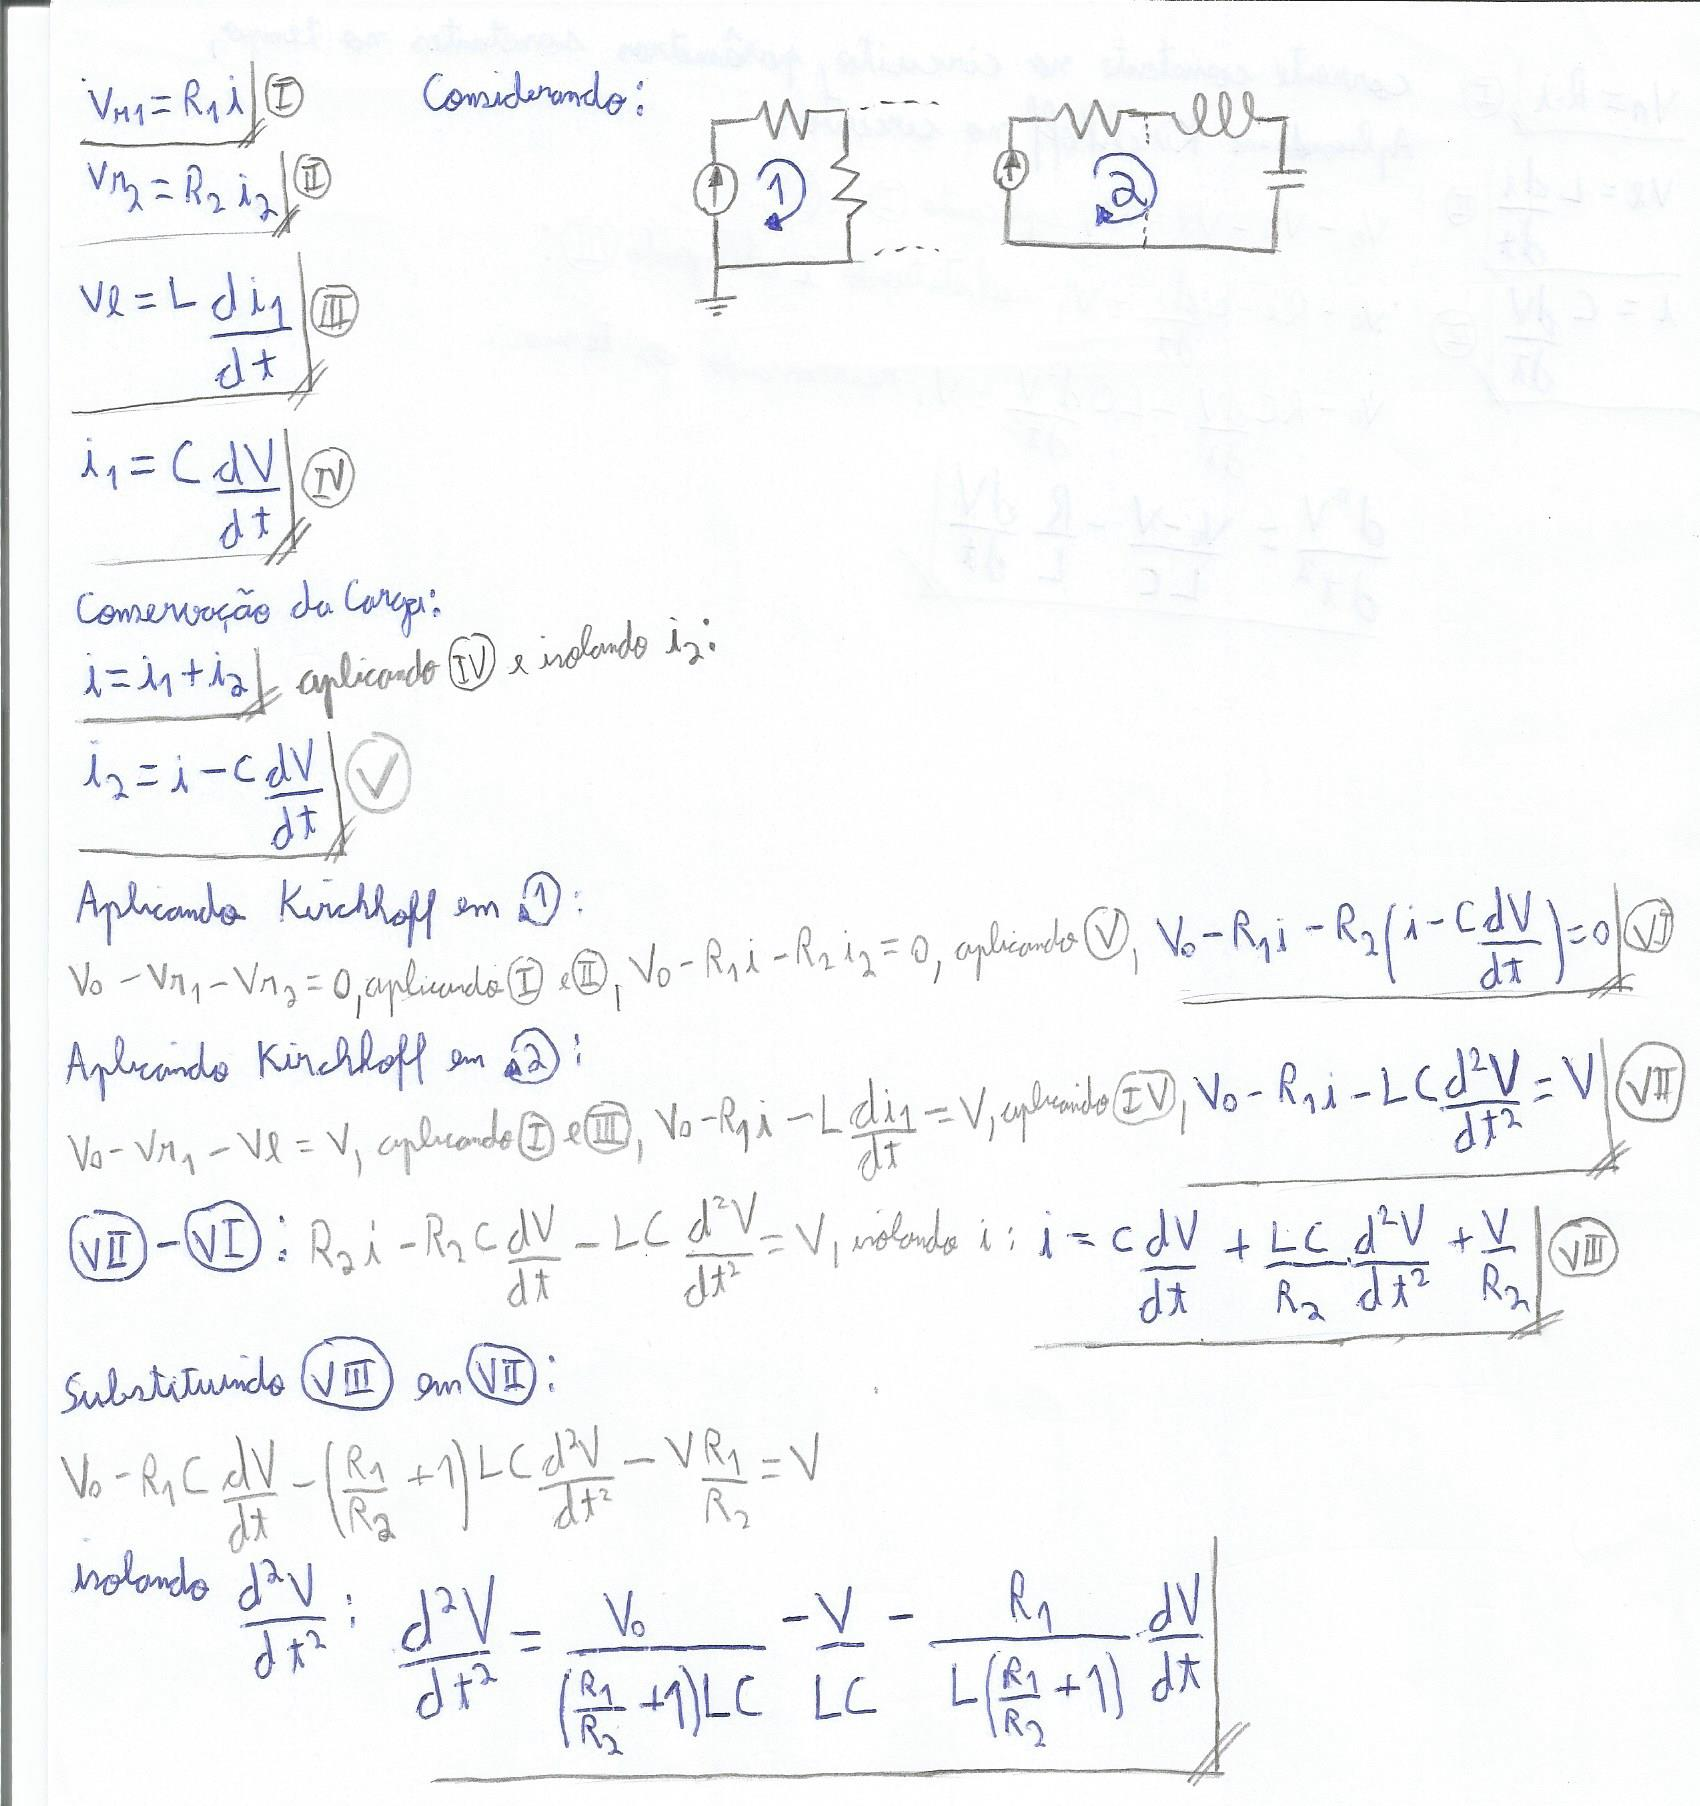 Vr1 = R1 i (I) Considerando:
1 2
Vr2 = R2 i2 (II)
Vl = L di1/dt (III)
i1 = C dV/dt (IV)
Conservação da Carga:
i = i1 + i2 aplicando (IV) e isolando i2:
i2 = i - C dV/dt (V)
Aplicando Kirchhoff em 1:
V0 - Vr1 - Vr2 = 0, aplicando (I) e (II), V0 - R1 i - R2 i2 = 0, aplicando (V), V0 - R1 i - R2 (i - C dV/dt) = 0 (VI)
Aplicando Kirchhoff em 2:
V0 - Vr1 - Vl = V, aplicando (I) e (III), V0 - R1 i - L di1/dt = V, aplicando (IV), V0 - R1 i - LC d²V/dt² = V (VII)
(VII) - (VI): R2 i - R2 C dV/dt - LC d²V/dt² = V, isolando i: i = C dV/dt + LC/R2 d²V/dt² + V/R2 (VIII)
Substituindo (VIII) em (VII):
V0 - R1 C dV/dt - (R1/R2 + 1) LC d²V/dt² - V R1/R2 = V
isolando d²V/dt²: d²V/dt² = V0/((R1/R2 + 1) LC) - V/LC - R1/(L (R1/R2 + 1)) dV/dt